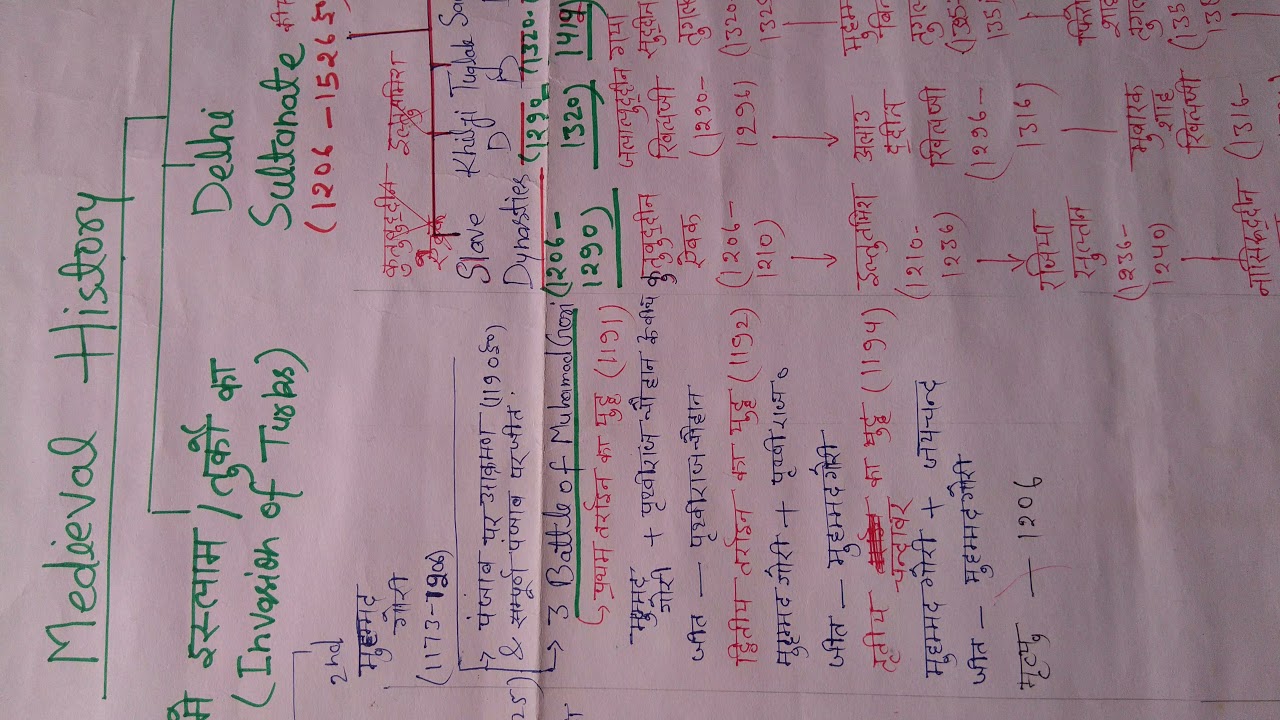 Medieval History
इस्लाम / तुर्को का
(Invasion of Turks)
2nd
मुहम्मद
गोरी
(1173-1206)
पंजाब पर आक्रमण (1190ई०)
& सम्पूर्ण पंजाब पर जीत.
3 Battle of Muhamad Gori
प्रथम तराईन का युद्ध (1191)
मुहम्मद
गोरी + पृथ्वीराज चौहान के बीच
जीत — पृथ्वीराज चौहान
द्वितीय तराईन का युद्ध (1192)
मुहम्मद गोरी + पृथ्वीराज०
जीत — मुहम्मद गोरी
तृतीय का युद्ध (1194)
चन्दावर
मुहम्मद गोरी + जयचन्द
जीत — मुहम्मद गोरी
मृत्यु — 1206
Delhi
Sultanate
(1206 - 1526ई०
कुतुबुद्दीन
ऐबक
इल्तुतमिश
Slave
Dynasties
(1206 -
1290)
कुतुबुद्दीन
ऐबक
(1206 -
1210)
इल्तुतमिश
(1210 -
1236)
रजिया
सुल्तान
(1236 -
1240)
नासिरुद्दीन
Khilji
D
(1290 -
1320)
जलालुद्दीन
खिलजी
(1290 -
1296)
अलाउ
द्दीन
खिलजी
(1296 -
1316)
मुबारक
शाह
खिलजी
(1316 -
Tuglak
D
(1320 -
1414)
गया
सुद्दीन
तुगल
(1320
मुहम्म
बिन
तुगल
शाह
तुगल